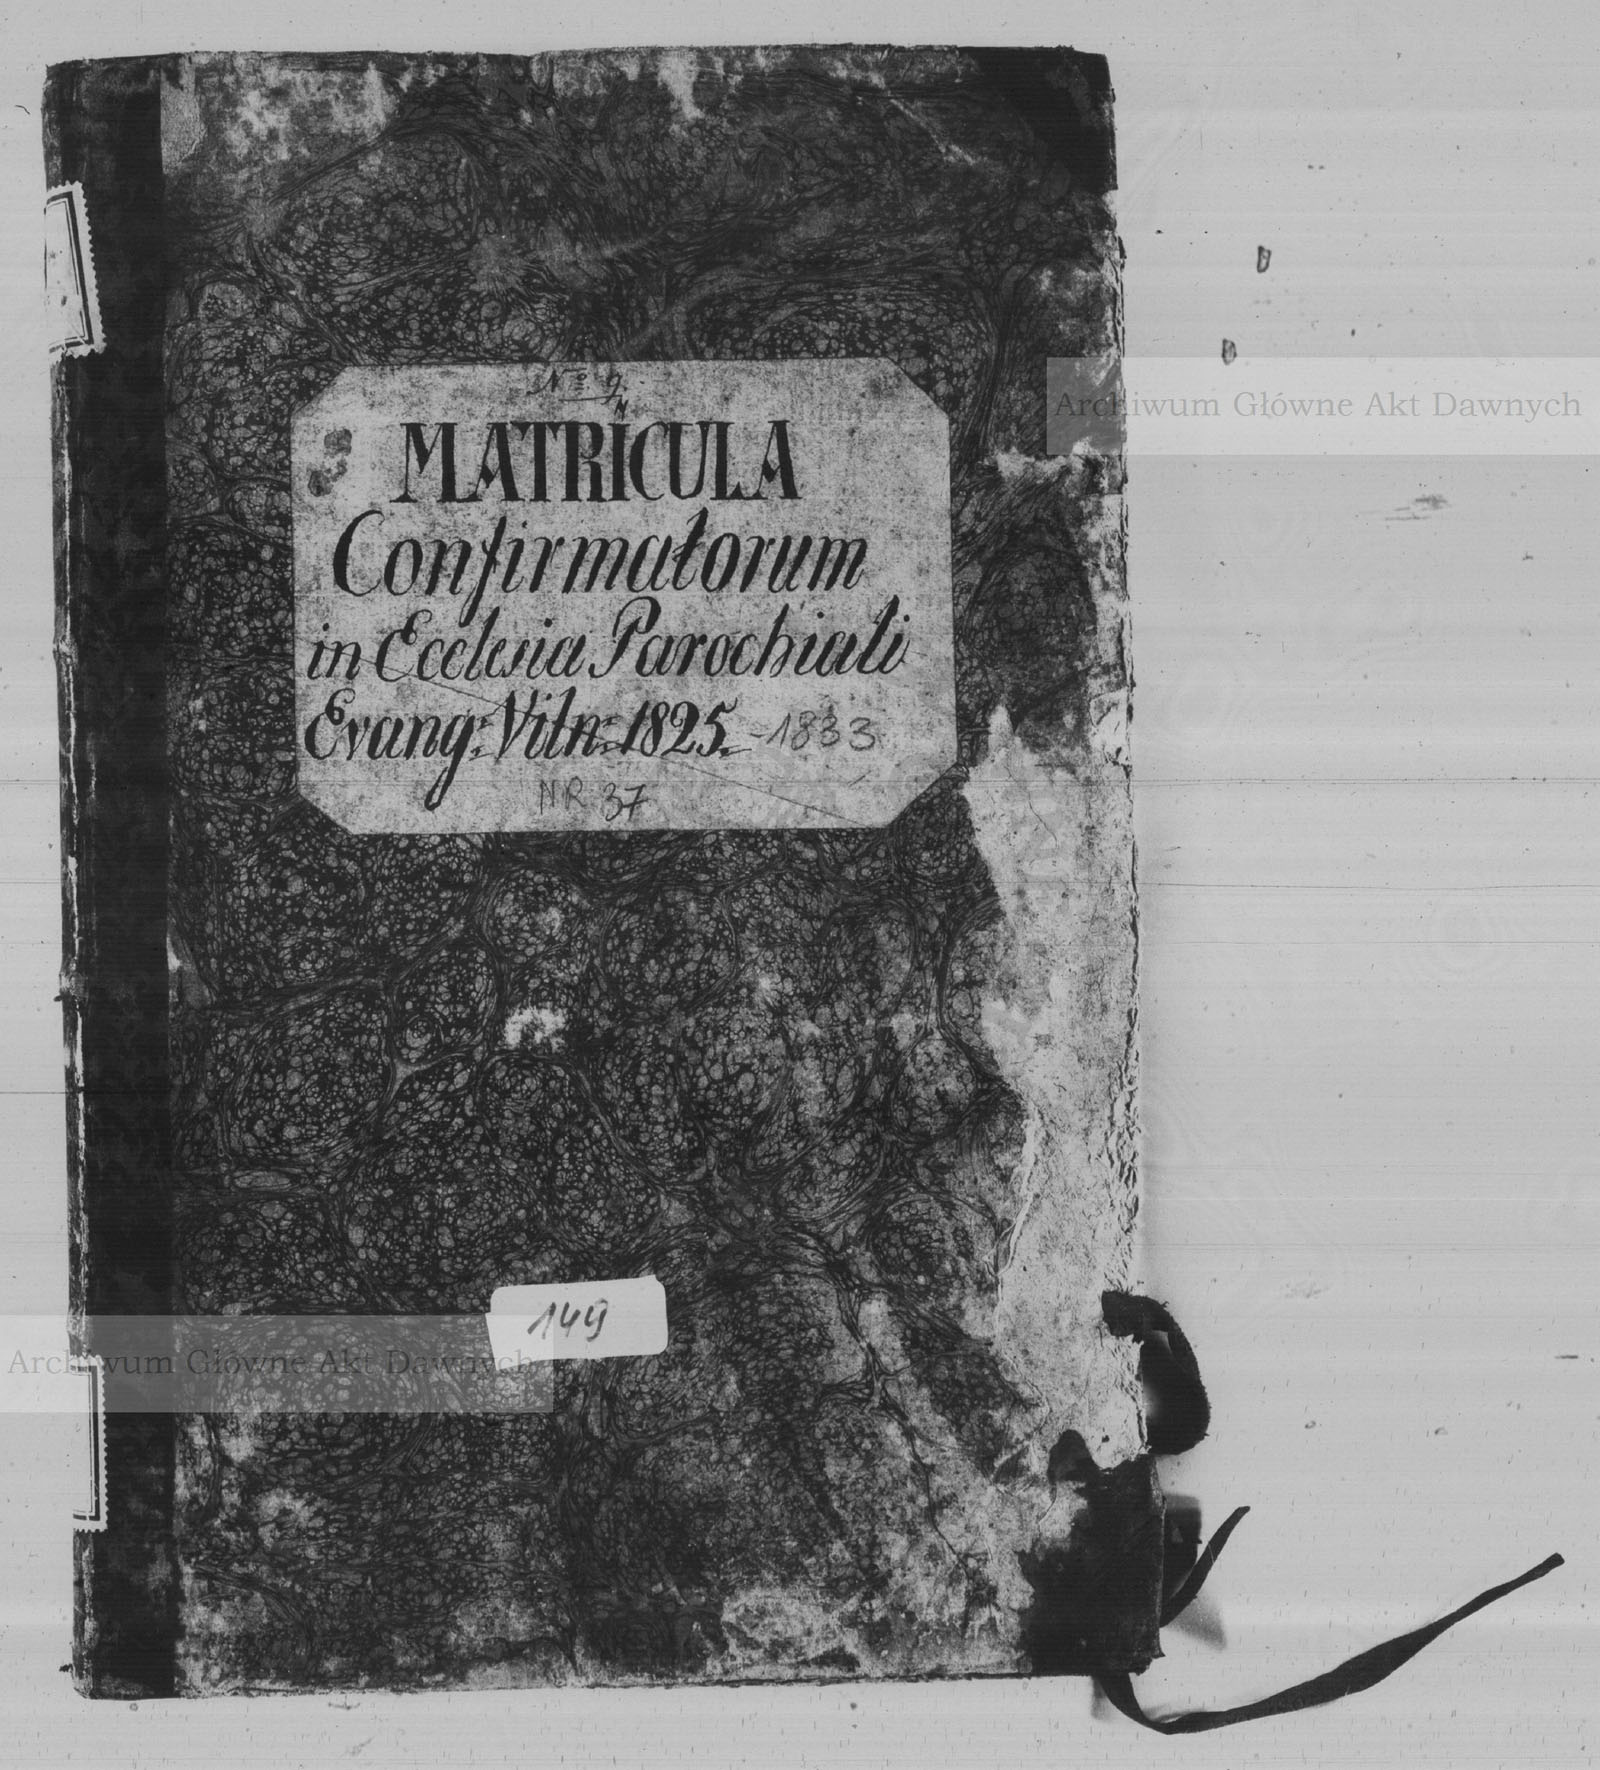 No 9.
M
MATRICULA
Confirmatorum
in Ecclesia Parochiali
Evang: Viln: 1825. -1833
NR 37
149
Archiwum Główne Akt Dawnych
Archiwum Główne Akt Dawnych